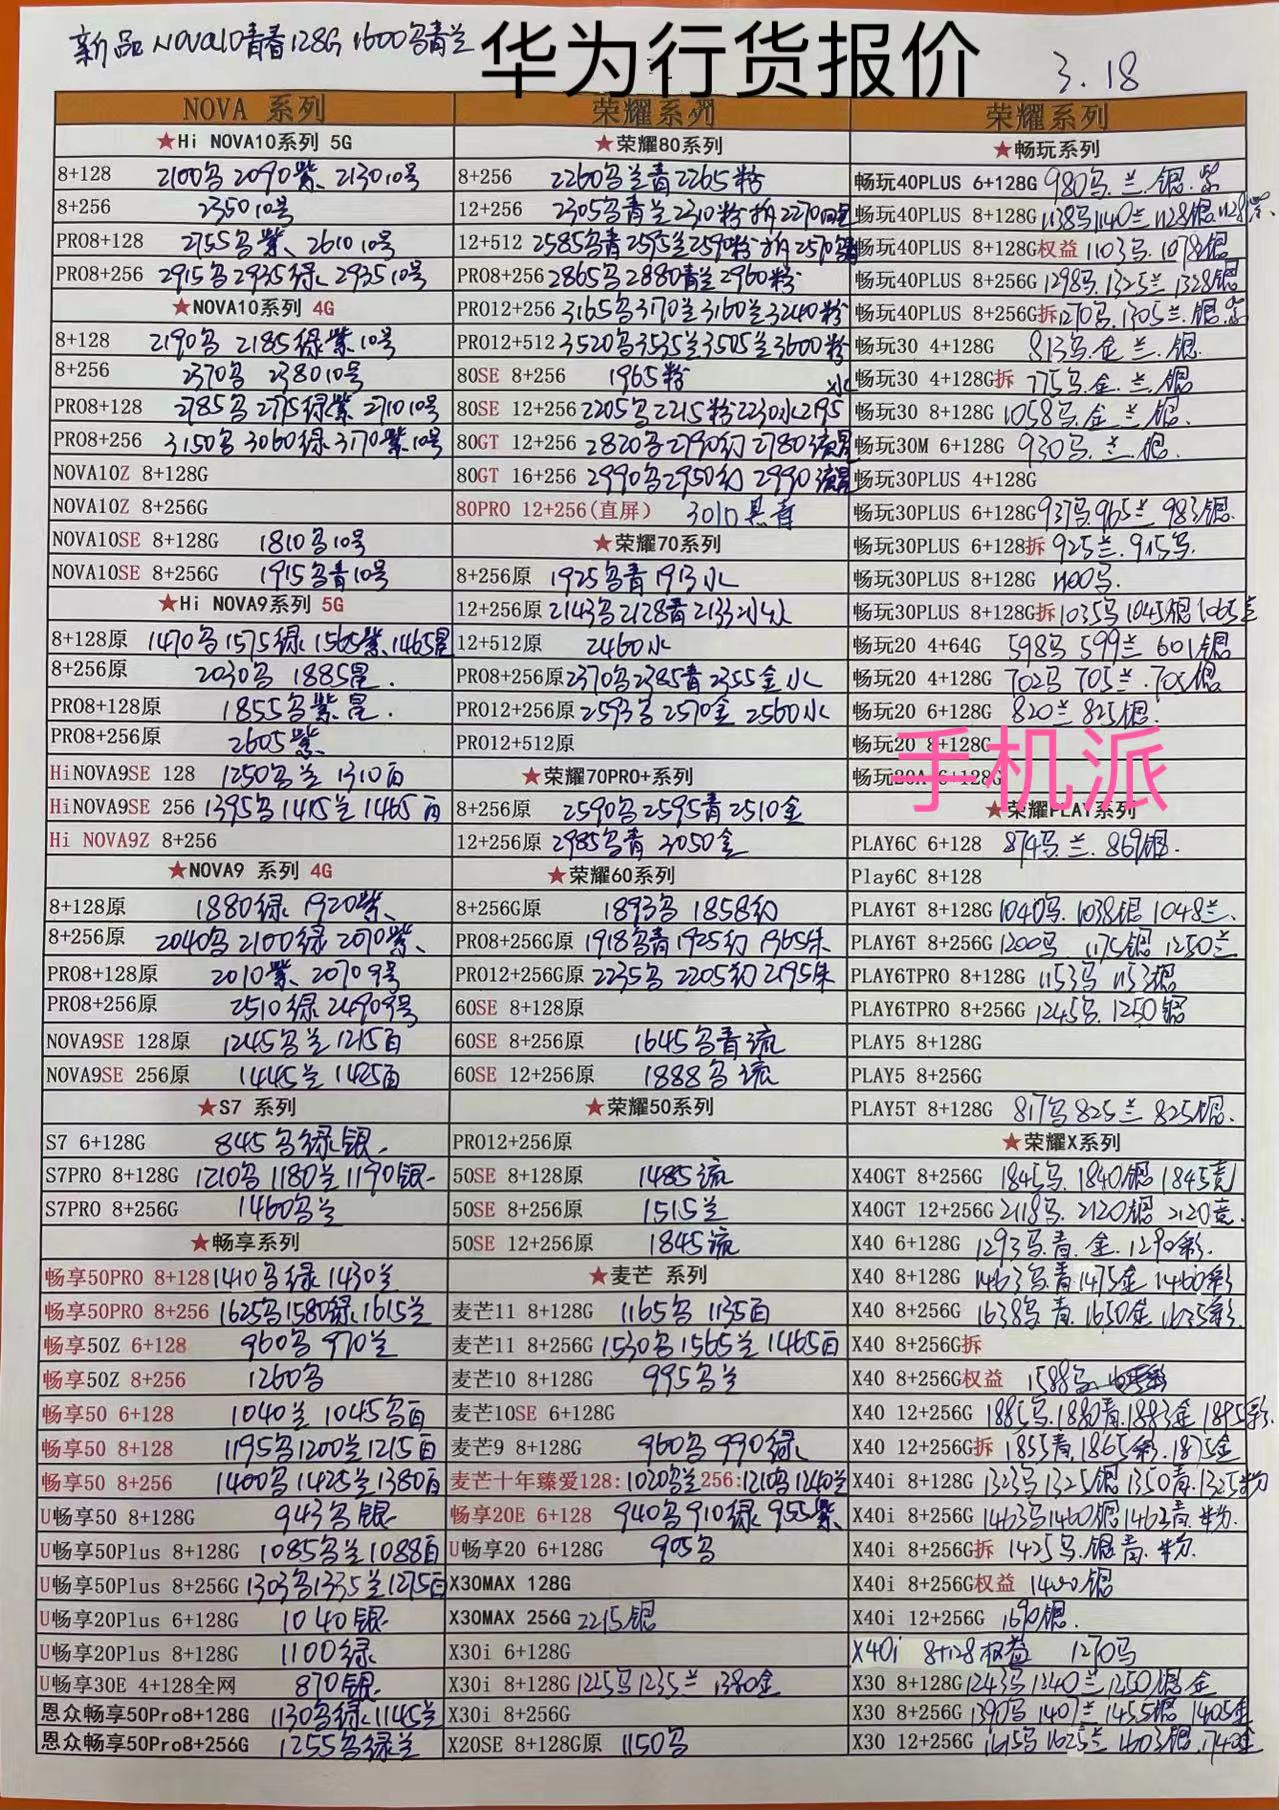 新品 NOVA10青春128G 1600乌青兰
华为行货报价
3.18
NOVA 系列
★Hi NOVA10系列 5G
8+128 2100乌 2090紫、2130 10号
8+256 2350 10号
PRO8+128 2755乌紫、2610 10号
PRO8+256 2915乌 2935绿 2935 10号
★NOVA10系列 4G
8+128 2190乌 2185绿紫 10号
8+256 2370乌 2380 10号
PRO8+128 2785乌 2775绿紫 2710 10号
PRO8+256 3150乌 3060绿 3170紫 10号
NOVA10Z 8+128G
NOVA10Z 8+256G
NOVA10SE 8+128G 1810乌 10号
NOVA10SE 8+256G 1915乌青 10号
★Hi NOVA9系列 5G
8+128原 1470乌 1575绿 1565紫、1465星
8+256原 2030乌 1885星.
PRO8+128原 1855乌紫星.
PRO8+256原 2605紫
HiNOVA9SE 128 1250乌兰 1310白
HiNOVA9SE 256 1395乌 1415兰 1465白
Hi NOVA9Z 8+256
★NOVA9 系列 4G
8+128原 1880绿 1920紫、
8+256原 2040乌 2100绿 2070紫、
PRO8+128原 2010紫、2070 9号
PRO8+256原 2510绿 2490 9号
NOVA9SE 128原 1245乌兰 1215白
NOVA9SE 256原 1445兰 1425白
★S7 系列
S7 6+128G 845乌绿银
S7PRO 8+128G 1210乌 1180兰 1190银
S7PRO 8+256G 1460乌兰
★畅享系列
畅享50PRO 8+128 1410乌绿 1430兰
畅享50PRO 8+256 1625乌 1580绿 1615兰
畅享50Z 6+128 960乌 970兰
畅享50Z 8+256 1260乌
畅享50 6+128 1040兰 1045乌白
畅享50 8+128 1195乌 1200兰 1215白
畅享50 8+256 1400乌 1425兰 1380白
U畅享50 8+128G 943乌银
U畅享50Plus 8+128G 1085乌兰 1088白
U畅享50Plus 8+256G 1303乌 1335兰 1275白
U畅享20Plus 6+128G 1040银
U畅享20Plus 8+128G 1100绿
U畅享30E 4+128全网 870银
恩众畅享50Pro8+128G 1130乌绿 1145兰
恩众畅享50Pro8+256G 1255乌绿兰
荣耀系列
★荣耀80系列
8+256 2260乌兰青 2265粉
12+256 2305乌青兰 2310粉 拆2270
12+512 2585乌青 2595兰 2590粉 拆2570
PRO8+256 2865乌 2880青兰 2960粉
PRO12+256 3165乌 3170兰 3160兰 3240粉
PRO12+512 3520乌 3535兰 3505兰 3600粉
80SE 8+256 1965粉
80SE 12+256 2205乌 2215粉 2230水 2195水
80GT 12+256 2820乌 2790幻 2780流星
80GT 16+256 2990乌 2950幻 2990流星
80PRO 12+256(直屏) 3010黑青
★荣耀70系列
8+256原 1925乌青 1913水
12+256原 2143乌 2128青 2133水
12+512原 2460水
PRO8+256原 2370乌 2385青 2355金水
PRO12+256原 2593乌 2570金 2560水
PRO12+512原
★荣耀70PRO+系列
8+256原 2590乌 2595青 2510金
12+256原 2985乌青 3050金
★荣耀60系列
8+256G原 1893乌 1858幻
PRO8+256G原 1918乌青 1925幻 1965朱
PRO12+256G原 2235乌 2205幻 2195朱
60SE 8+128原
60SE 8+256原 1645乌青流
60SE 12+256原 1888乌流
★荣耀50系列
PRO12+256原
50SE 8+128原 1485流
50SE 8+256原 1515兰
50SE 12+256原 1845流
★麦芒 系列
麦芒11 8+128G 1165乌 1135白
麦芒11 8+256G 1530乌 1565兰 1465白
麦芒10 8+128G 995乌兰
麦芒10SE 6+128G
麦芒9 8+128G 960乌 990绿
麦芒十年臻爱128:1020乌兰256:1210乌 1240兰
畅享20E 6+128 940乌 910绿 955紫
U畅享20 6+128G 905乌
X30MAX 128G
X30MAX 256G 2215银
X30i 6+128G
X30i 8+128G 1225乌 1235兰 1380金
X30i 8+256G
X20SE 8+128G原 1150乌
荣耀系列
★畅玩系列
畅玩40PLUS 6+128G 980乌.兰.银.紫
畅玩40PLUS 8+128G 1138乌 1140兰 1128银 1128紫.
畅玩40PLUS 8+128G权益 1103乌. 1078银
畅玩40PLUS 8+256G 1298乌. 1325兰 1328银
畅玩40PLUS 8+256G拆 1270乌. 1305兰.银.紫
畅玩30 4+128G 813乌.金 兰.银.
畅玩30 4+128G拆 775乌.金.兰.银
畅玩30 8+128G 1058乌.金 兰.银.
畅玩30M 6+128G 930乌.兰.银.
畅玩30PLUS 4+128G
畅玩30PLUS 6+128G 937乌. 965兰 983银.
畅玩30PLUS 6+128拆 925兰. 915乌.
畅玩30PLUS 8+128G 1100乌.
畅玩30PLUS 8+128G拆 1035乌 1045银 1065兰
畅玩20 4+64G 598乌 599兰 601银
畅玩20 4+128G 702乌 705兰.705银
畅玩20 6+128G 820兰 825银.
畅玩20 8+128G
手机派
畅玩20A 6+128G
★荣耀PLAY系列
PLAY6C 6+128 874乌.兰.869银.
Play6C 8+128
PLAY6T 8+128G 1040乌. 1038银 1048兰.
PLAY6T 8+256G 1200乌 1175银 1250兰
PLAY6TPRO 8+128G 1153乌 1153银
PLAY6TPRO 8+256G 1245乌. 1250银
PLAY5 8+128G
PLAY5 8+256G
PLAY5T 8+128G 817乌 825兰 825银.
★荣耀X系列
X40GT 8+256G 1845乌. 1840银 1845竞
X40GT 12+256G 2118乌. 2120银 2120竞.
X40 6+128G 1293乌.青.金.1290彩.
X40 8+128G 1463乌.青 1475金 1460彩
X40 8+256G 1638乌.青.1650金 1635彩.
X40 8+256G拆
X40 8+256G权益 1588乌
X40 12+256G 1885乌. 1880青. 1883金 1895彩.
X40 12+256G拆 1855青. 1865彩. 1875金
X40i 8+128G 1323乌 1325银 1350青. 1325粉
X40i 8+256G 1463乌 1460银 1463青.粉.
X40i 8+256G拆 1425乌.银青.粉.
X40i 8+256G权益 1400银
X40i 12+256G 1690银.
X40i 8+128权益 1270乌
X30 8+128G 1243乌 1240兰 1250银 金
X30 8+256G 1390乌 1407兰 1455银 1405金
X30 12+256G 1615乌 1625兰 1603银. 1740金